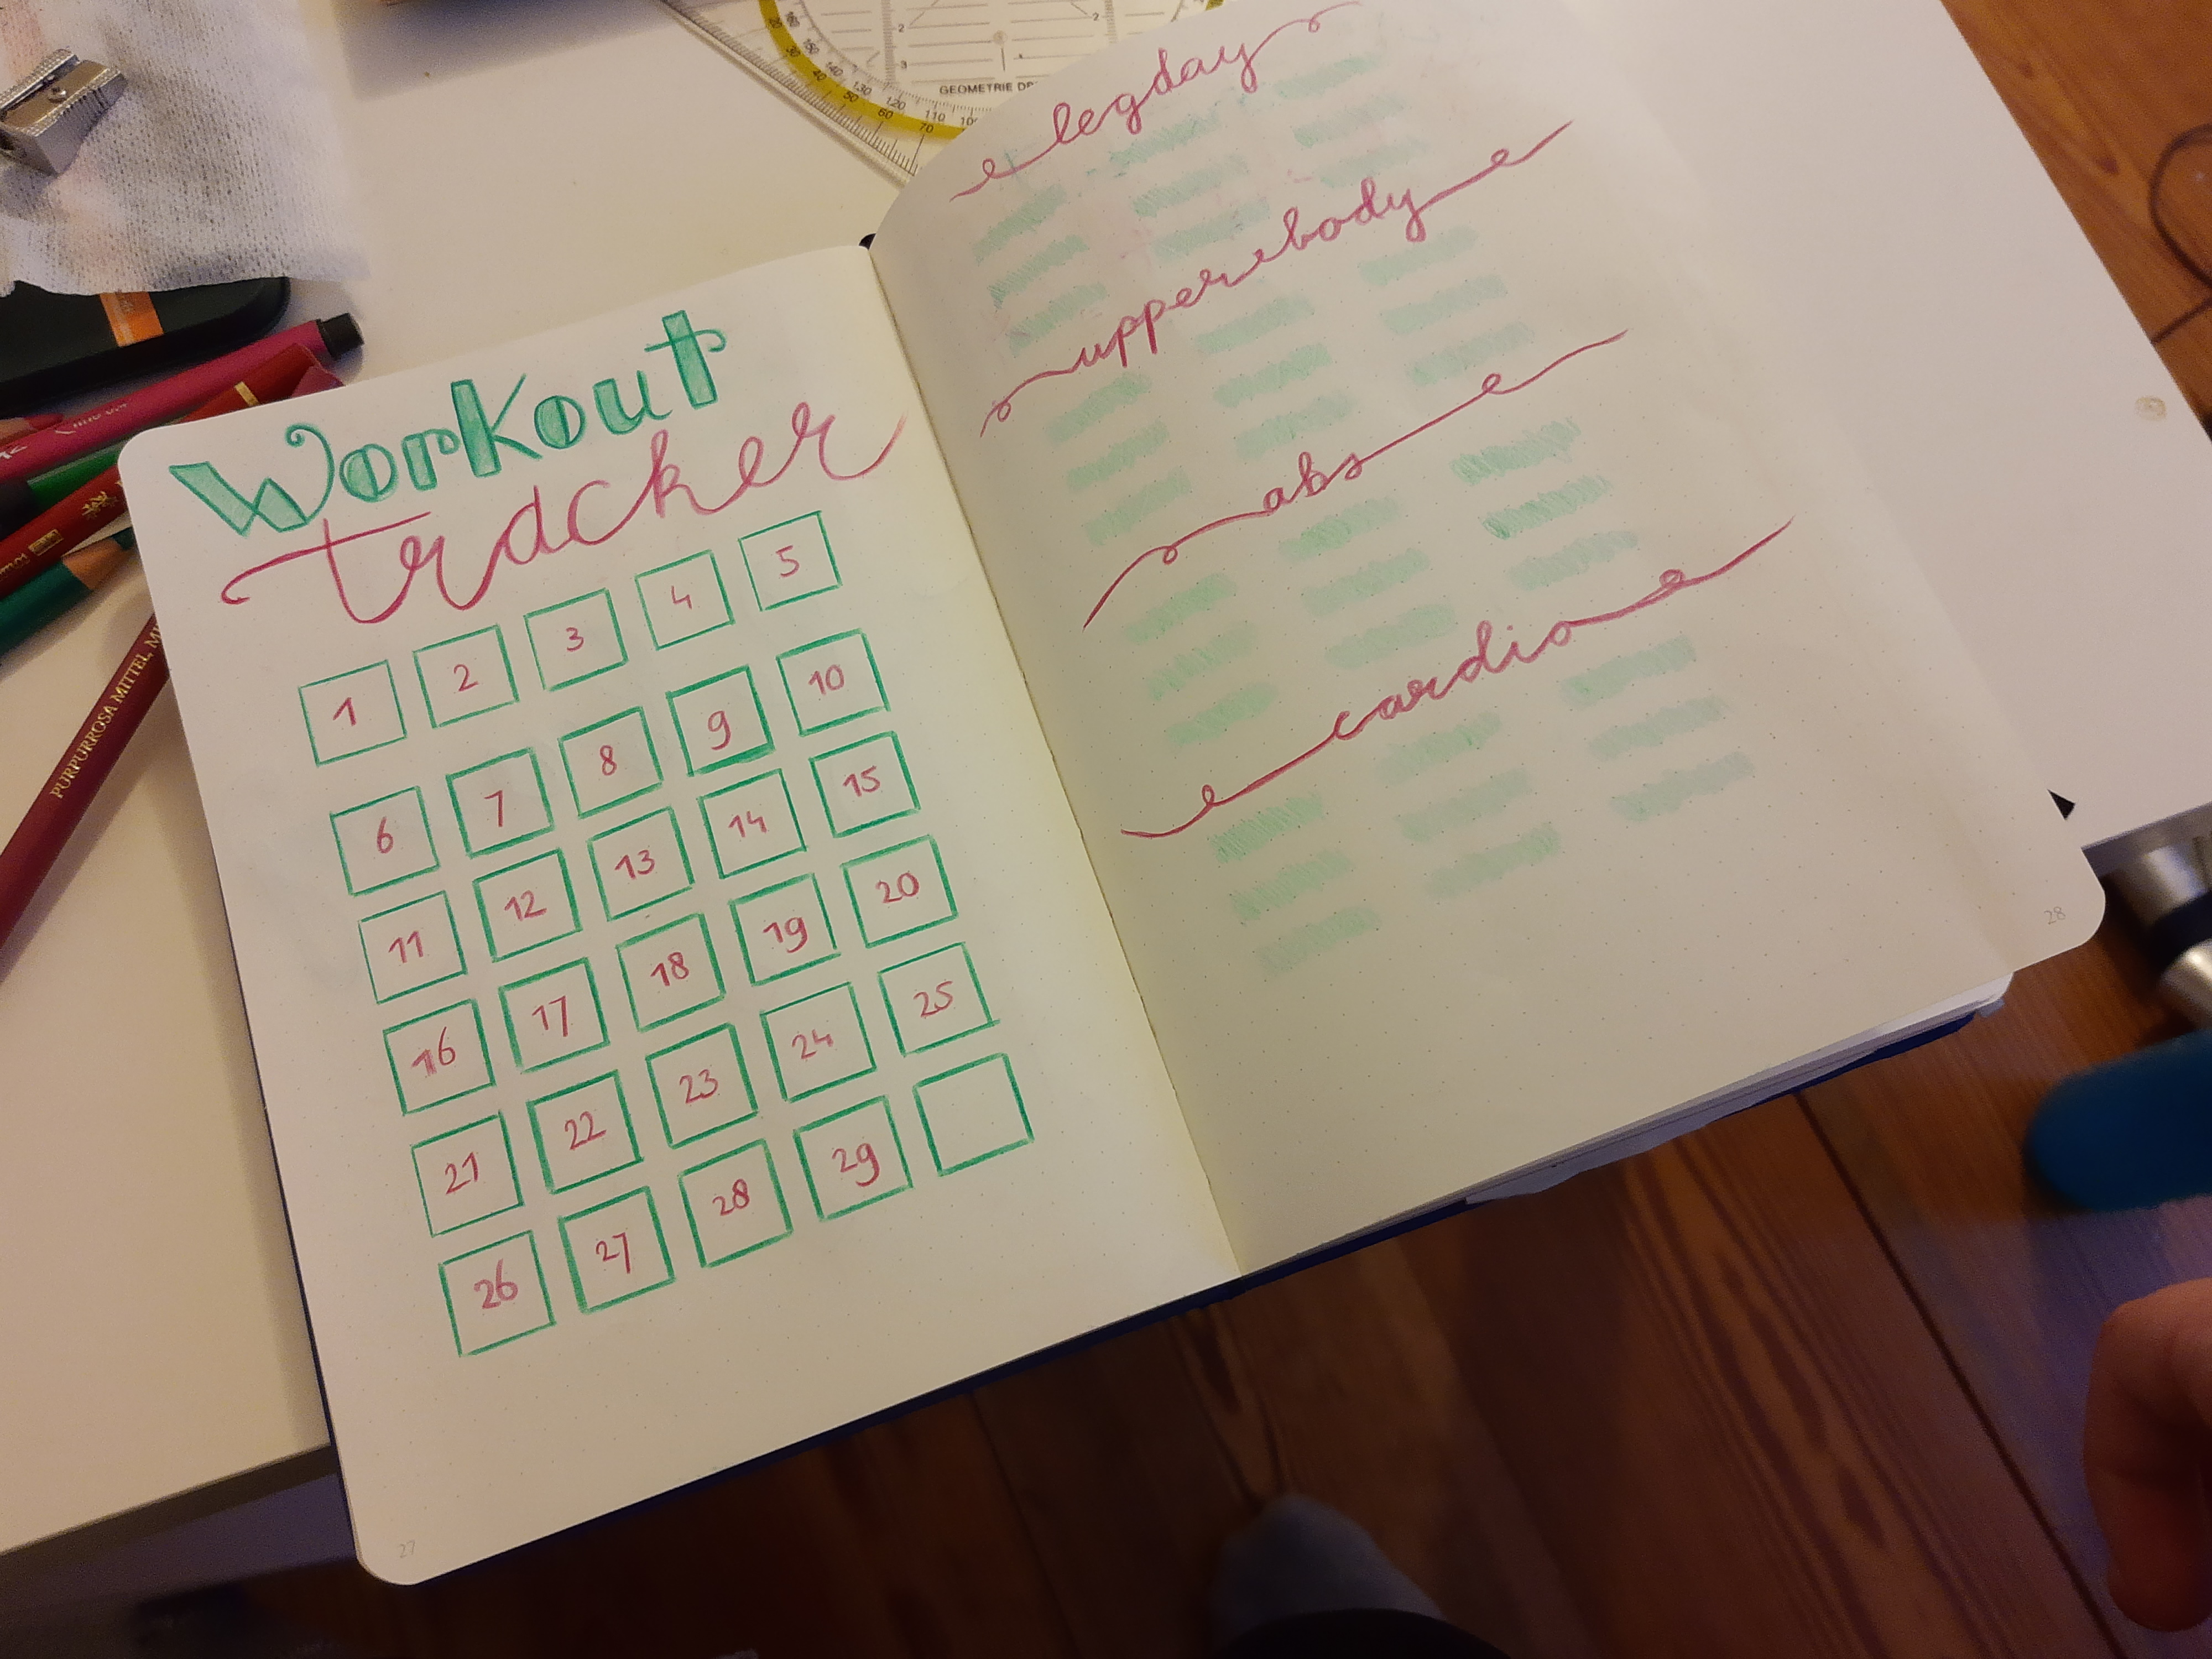 Workout
tracker
1 2 3 4 5
6 7 8 9 10
11 12 13 14 15
16 17 18 19 20
21 22 23 24 25
26 27 28 29
27
legday
upperbody
abs
cardio
28
GEOMETRIE
PURPURROSA MITTEL,